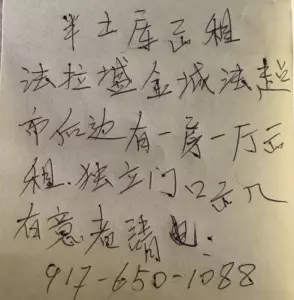 半土库出租
法拉盛金城法超
市伱边有一房一厅出
租.独立门口出入
有意者請电.
917-650-1088